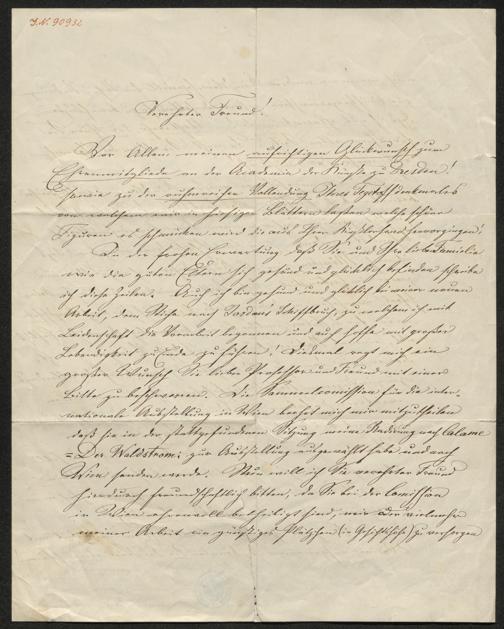 I.N. 90932
Verehrter Freund!
Vor Allem meinen aufrichtigen Glückwunsch zum
Ehrenmitgliede an der Academie der Künste zu Dresden!
sowie zu der ruhmreichen Vollendung Ihres
von welchem wir in hiesigen Blättern lasen welche schöne
Figuren es schmücken wird die aus Ihrer Künstlerhand hervorgingen!
In der frohen Erwartung daß Sie und Ihre liebe Familie
wie die guten Eltern sich gesund und glücklich befinden schreibe
ich diese Zeilen. Auch ich bin gesund und glücklich bei meiner neuen
Arbeit, dem Stiche nach Schiffbruch, zu welchem ich mit
Leidenschaft die Vorarbeit begonnen und auch hoffe mit großer
Lebendigkeit zu Ende zu führen! Diesmal regt mich ein
großer Wunsch Sie lieber Professor und Freund mit einer
Bitte zu beschweren. Die Commission für die inter-
nationale Ausstellung in Wien beehrt mich mir mitzutheilen
daß sie in der stattgefundenen Sitzung meine Radirung nach Calame
"Der Waldstrom" zur Ausstellung ausgewählt habe und nach
Wien senden werde. Nun will ich Sie verehrter Freund
hierdurch freundschaftlich bitten, da Sie bei der Comission
in Wien ehrenvoll betheiligt sind, mir oder vielmehr
meiner Arbeit ein günstiges Plätzchen (in Gesichtshöhe) zu versorgen